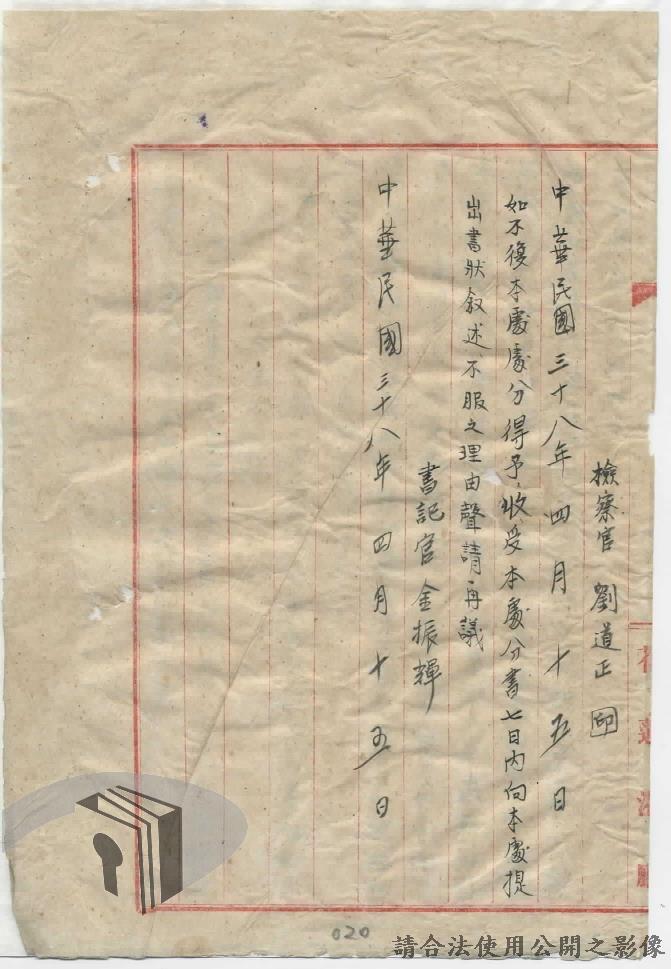 檢察官 劉道正 印
中華民國三十八年四月十五日
如不復本處處分得予收受本處分書七日內向本處提
出書狀敘述不服之理由聲請再議
書記官 金振輝
中華民國三十八年四月十五日
020
請合法使用公開之影像